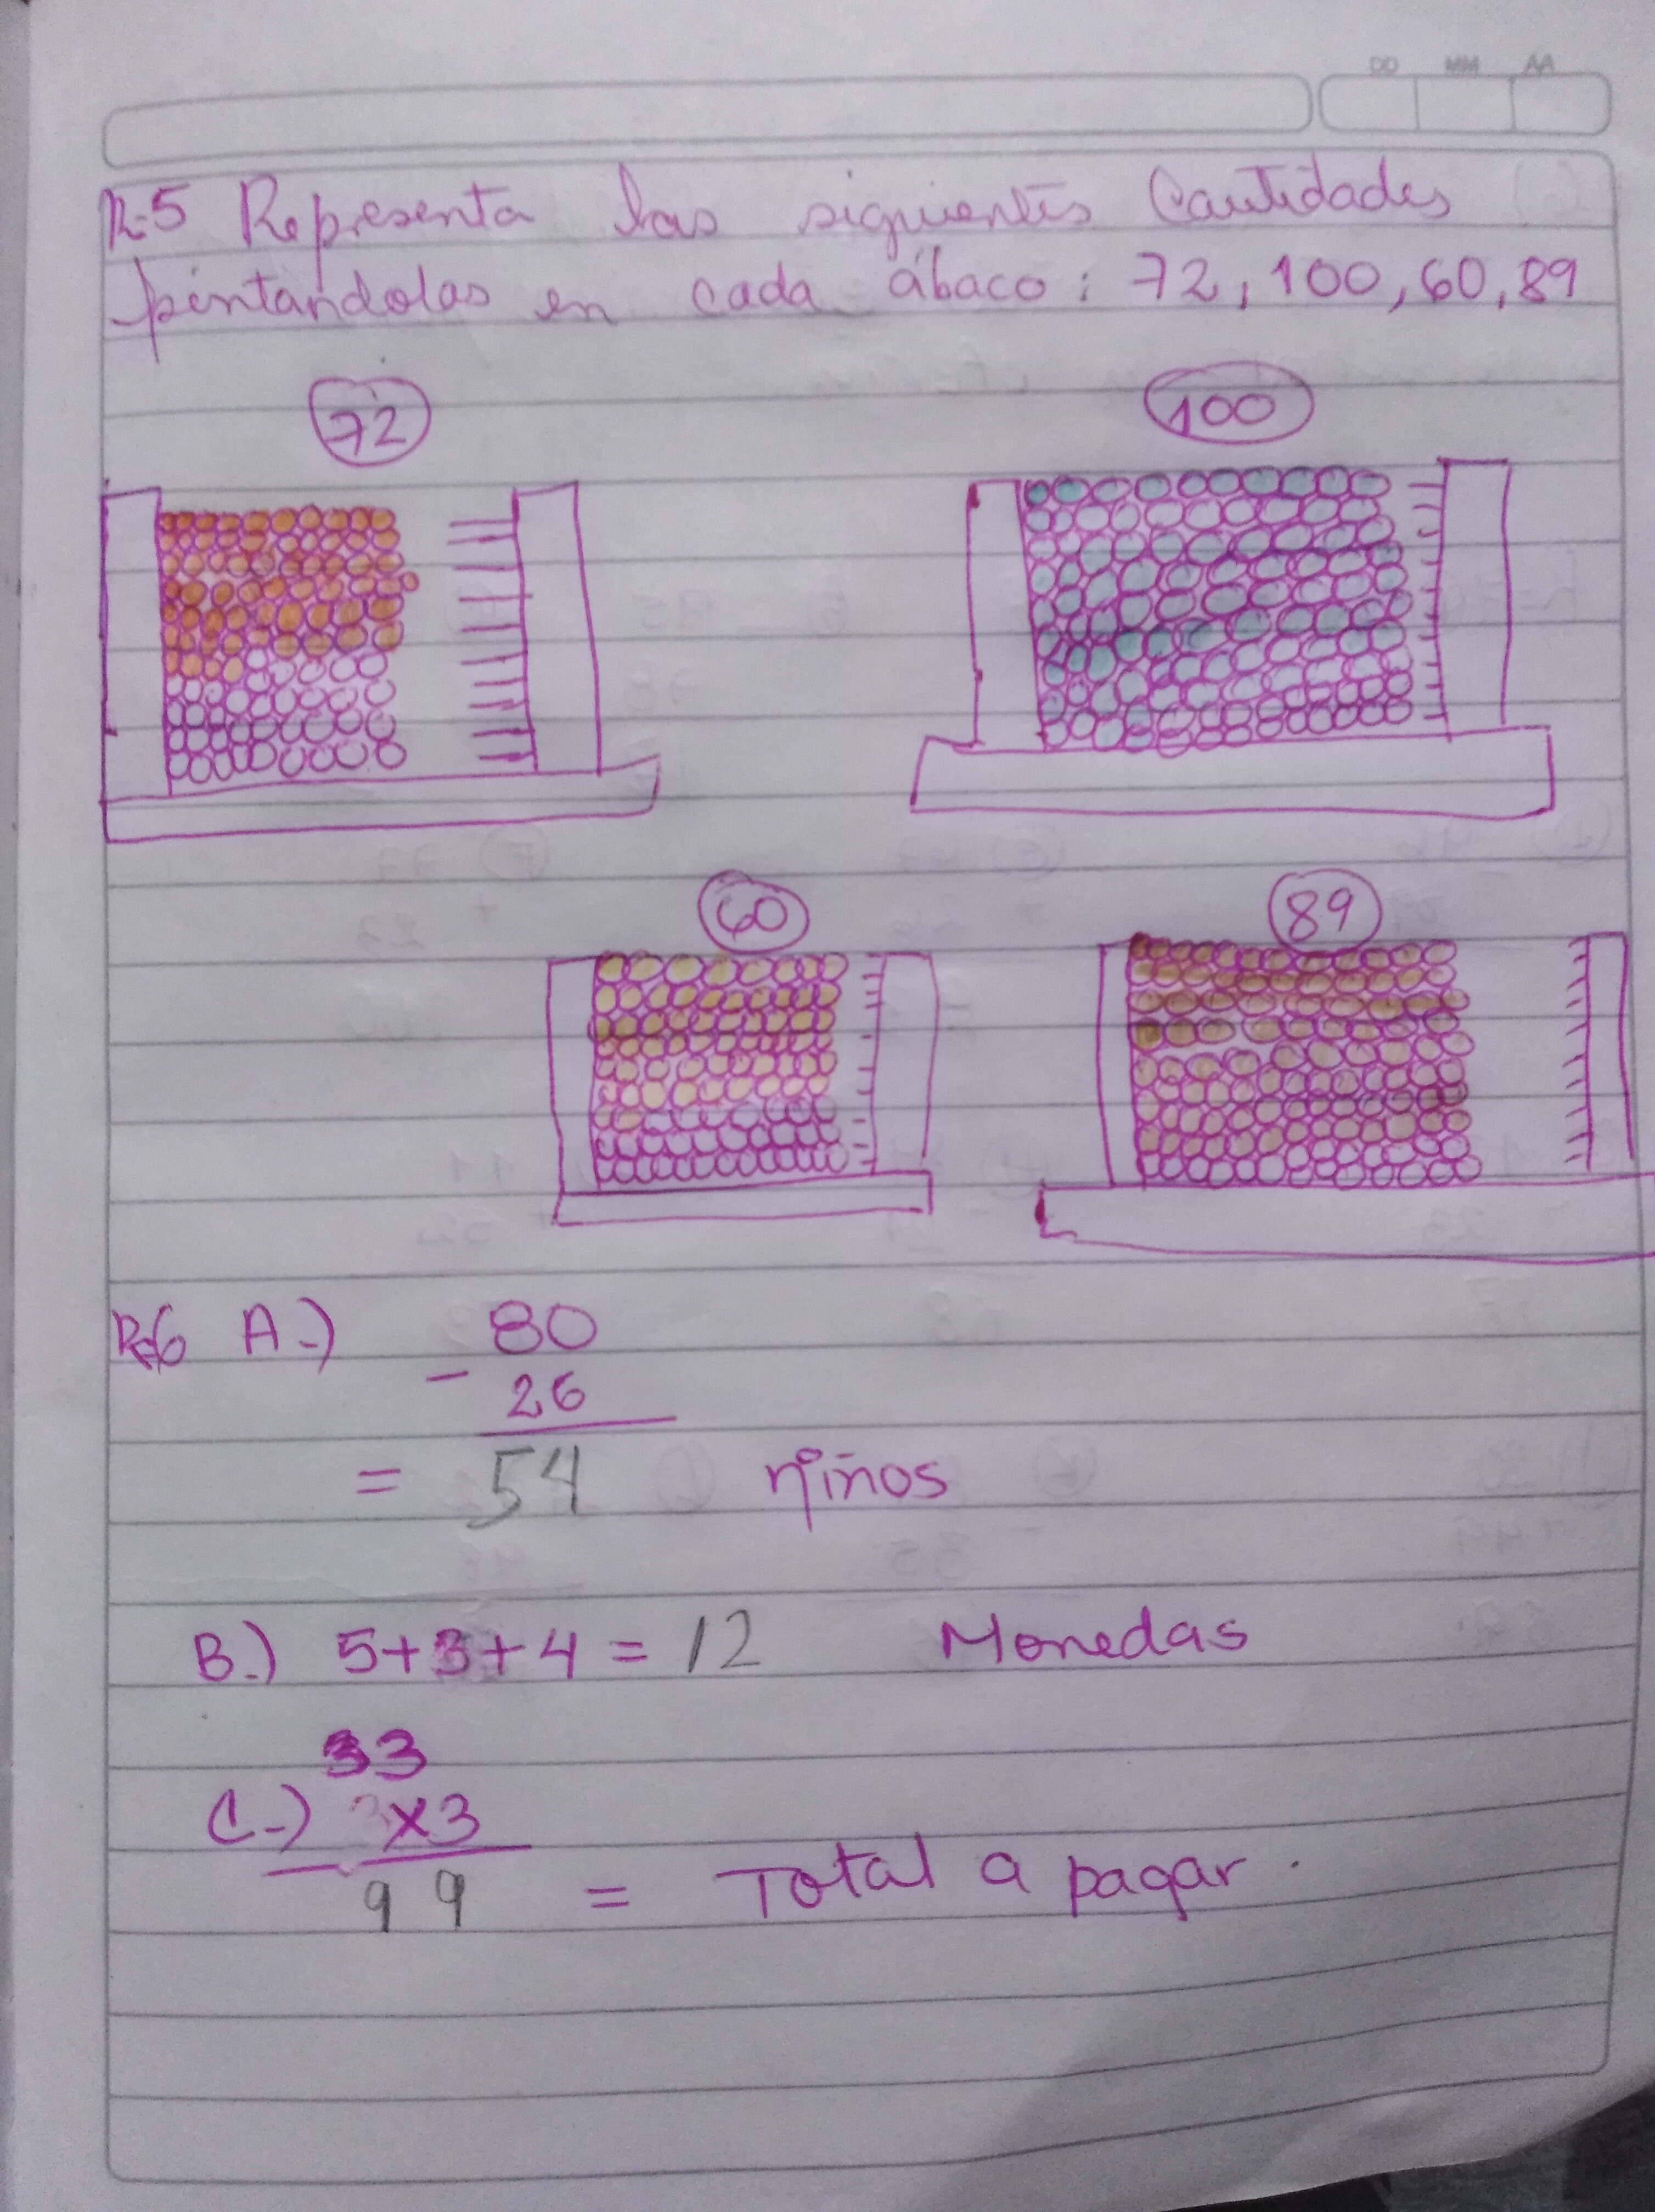 DD MM AA
R-5 Representa las siguientes Cantidades
pintandolas en cada ábaco: 72, 100, 60, 89
72 100
60 89
R-6 A-) 80
- 26
= 54 niños
B-) 5+3+4 = 12 Monedas
33
C-) x3
99 = Total a pagar.